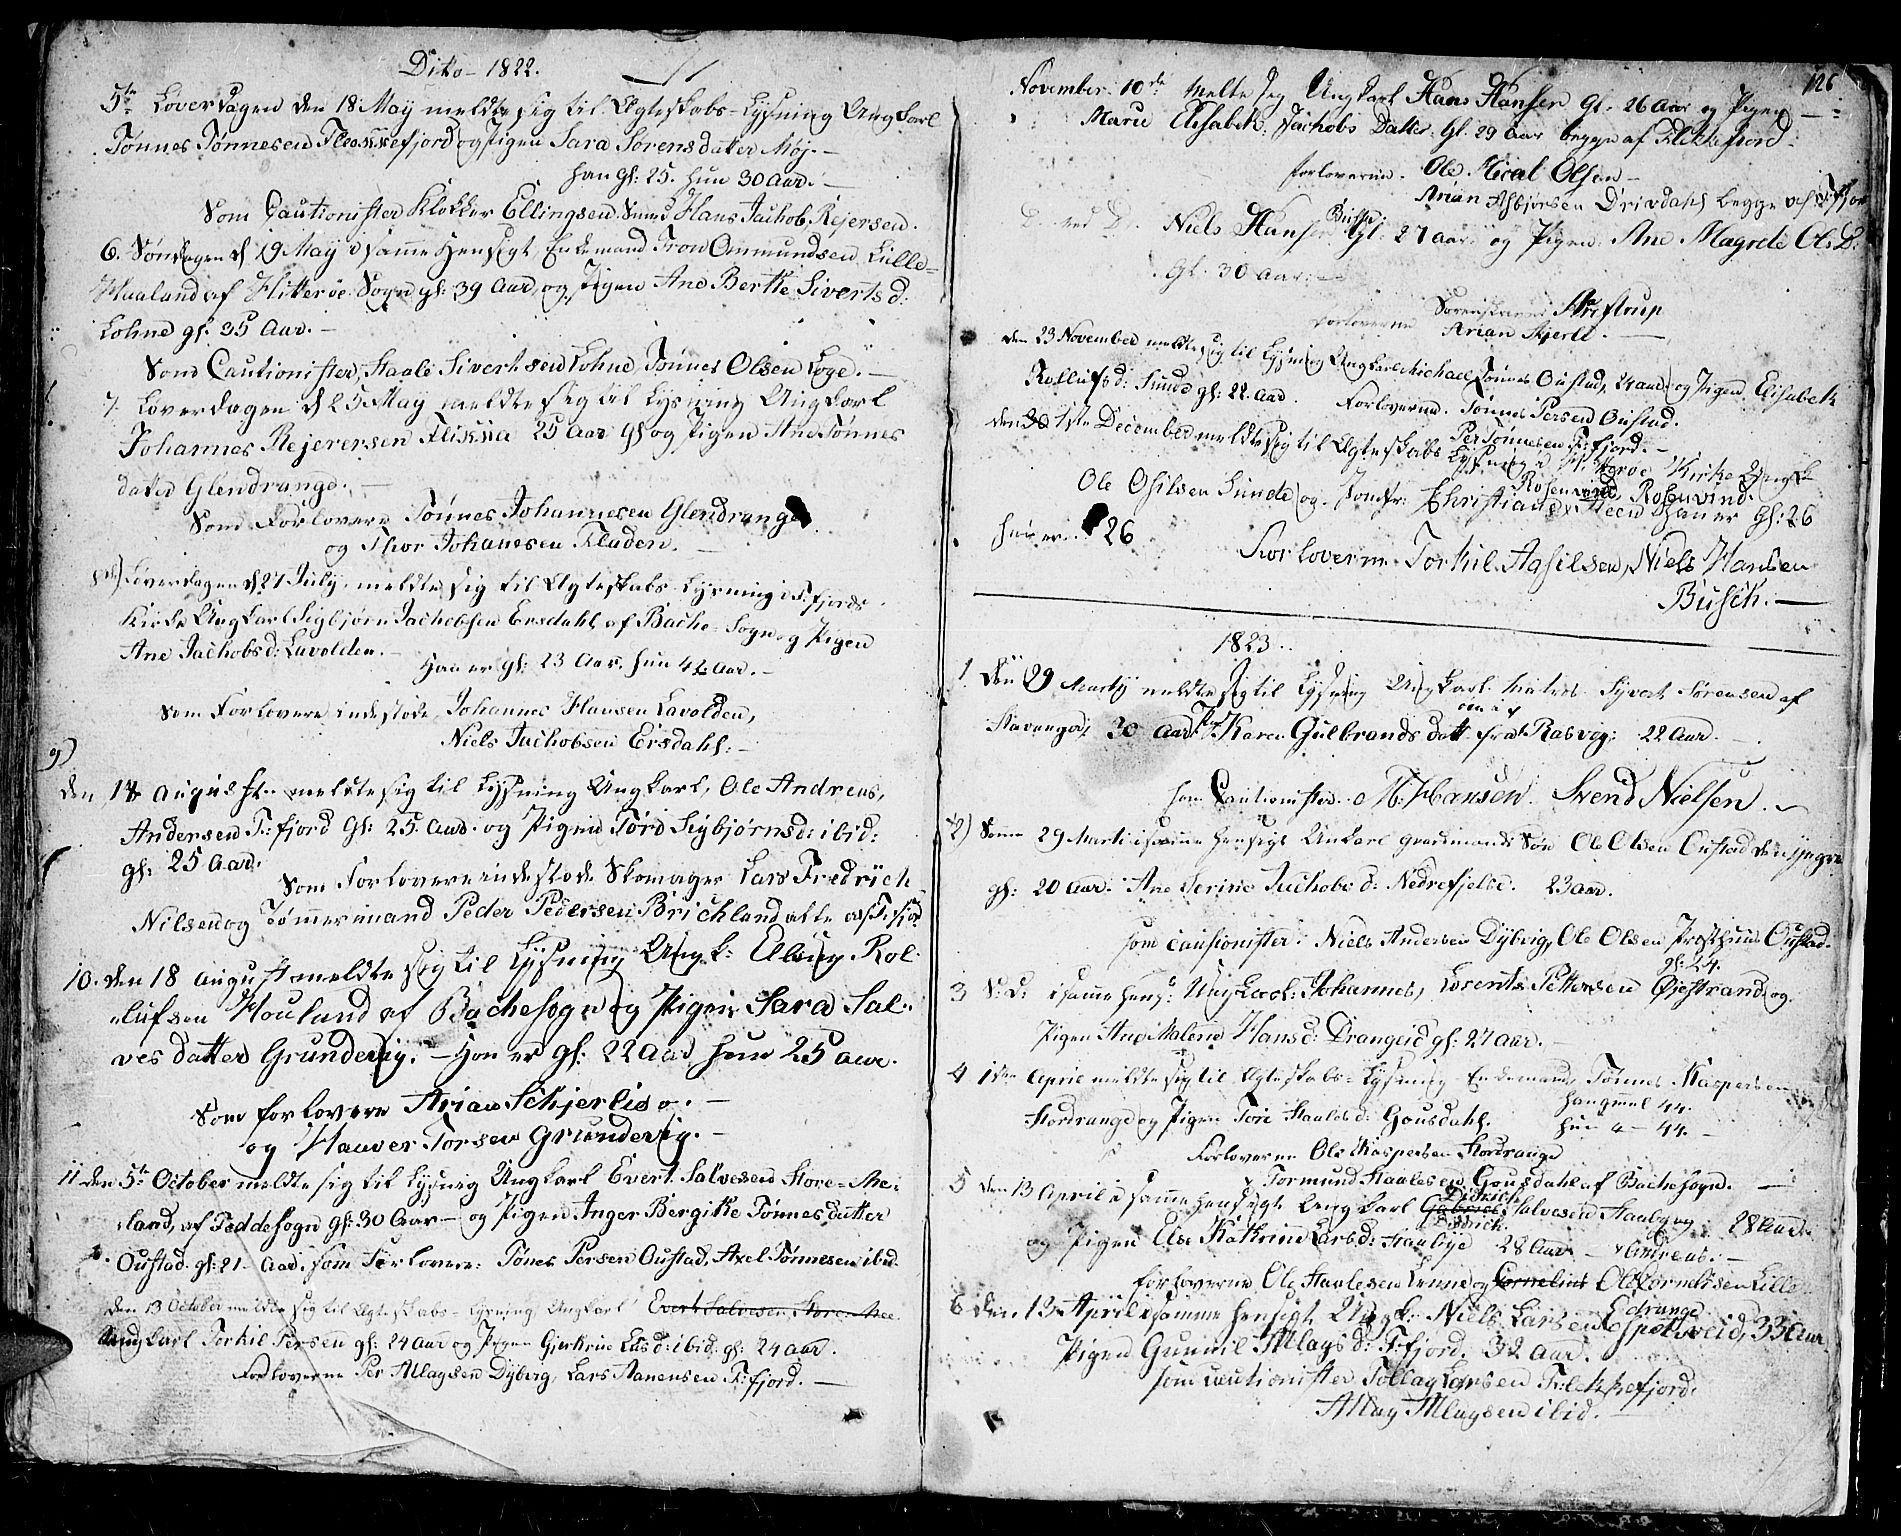 Dito 1822.
5te Løverdagen den 18 May meldte sig til Ægteskabs-Lysning Ungkarl
Tønnes Tønnesen Fleckefjord og Pigen Sara Sørensdatter Møj. —
han gl: 25. hun 30 Aar. —
Som Cautionister Klokker Ellingsen Smed Hans Jachob Rejersen.
6. Søndagen d 19 May i samme Hensigt Enkemand Tron Ommundsen Lille-
Haaland af Hitterøe Sogn gl: 39 Aar, og Pigen Ane Berthe Siverts d:
Lohne gl: 35 Aar. —
Som Cautionister, Staale Sivertsen Lohne, Tønnes Olsen Loge. —
7. Løverdagen d 25 May meldte sig til Lysning Ungkarl
Johannes Rejerersen Flikka 25 Aar gl og Pigen Ane Tønnes
datter Glendrange. —
Som Forlovere Tønnes Johannesen Glendrange
og Thor Johanesen Fladen. —
Løverdagen d 27 July meldte sig til Ægteskabs-Lysning i F:fjords
Kirke Ungkarl Sigbjørn Jachobsen Ersdahl af Bache-Sogn og Pigen
Ane Jachobsd: Lavolden. —
Han er gl: 23 Aar. hun 42 Aar. —
Som Forlovere indestode, Johannes Hansen Lavolden,
Niels Jachobsen Ersdahl: —
9)
den 18 August meldte sig til Lysning Ungkarl, Ole Andreas,
Andersen F:fjord gl: 25 Aar. og Pigen Tord Sigbjørnsd: ibid:
gl: 25 Aar.
Som Forlovere indestode Skomager Lars Fredrich
Nilsen og Tømmermand Peder Pedersen Brichland alle af F:fjord
10. den 18 August meldte sig til Lysning Ungk: Elling Rol-
lufsen Houland af Bache sogn og Pigen Sara Sal-
ves datter Grundevig. — Han er gl: 22 Aar, hun 25 aar.
Som forlovere Arian Schjerlis o. —
og Hauver Torsen Grundevig. —
11 den 5te October meldte sig til Lysnig Ungkarl Evert Salvesen Store-Mei
land, af Feddesogn gl: 30 Aar — og Pigen Inger Bergitte Tønnesdatter
Oustad. gl: 21 Aar. som Forlovere: Tønes Persen Oustad, Axel Tønnesen ibid
den 13 October meldte sig til Ægteskabs-Lysning Ungkarl Evert Salvesen Store-Mei
Ungkarl Torkil Persen gl: 24 Aar og Pigen Gurine Lasd: ibid. gl: 24 aar.
Forloverne Per Atlagsen Dyberg, Lars Aanensen F:fjord. —
126
November 10de Melte Seg Ungkarl Hans Hansen Gl. 26 Aar og Pigen
Maru Elisabeth Jachobs Datter. Gl. 29 Aar begge af Flekkefiord.
forloverne. Ole Micel Olsen —
Arian Asbjørsen Drivdahl begge af F:fjor
D: ved D: Niels Hansen Busch Gl: 27 aar og Pigen Ane Magrete Ols D:
Gl: 30 Aar: —
forloverne Sorenskriver Striftrup
Arian Skjerli. —
den 23 November meldte sig til Lysning Ungkarl Michael Tønnes Oustad, 24 aar og Pigen Elisabeth
Rollufsd: Sunde gl: 22 Aar. Forloverne. Tønnes Persen Oustad.
Per Tønnesen F:fjord. —
den 30 1ste December meldte sig til Ægteskabs Lysning i Hitterøe Kirke Ungk
Ole Osilsen Sunde og Jomfr: Christiane Rosenvind Han er gl: 26
hun er 26
Forloverne Torkil Aasilsen, Niels Hansen
Busch. —
1823.
1. den 29 Martij meldte sig til Lysning Ungkarl Matros Syvert Sørensen af
Stavanger 30 Aar Pig Karen Gulbrands datt fra Rasvog: 22 Aar.
som Cautionister M: Hansen. Svend Nielsen. —
2) Samme 29 Marti i samme hensigt Unkarl gaardmands Søn Ole Olsen Oustad den yngre
gl: 20 Aar. Ane Serine Jachobs d: Nedrefjelde. 23 aar.
som causionister: Niels Andersen Dybvig, Ole Olsen Prosthuus Oustad.
gl: 24.
3 S: D: i samme hens: Ungkarl: Johannes, Lorents Pettersen Øjestrand og
Pigen Ane Malene Hansd: Drangeid gl: 27 aar. —
4 1den April meldte sig til Ægteskabs-Lysning Enkemand, Tønnes Kaspersen
Stordrange og Pigen Tore Staalesd: Gousdahl. han gmel 44.
hun — 44. —
Forloverne Ole Kaspersen Stordrange
Tormund Staalesen Gousdahl af Bache sogn. —
5 den 13 April i samme hensigt Ungkarl Gabriel Didrich Salvesen Staaby 28 Aar
og Pigen Else Katrine Larsd: Staabye 28 Aar
forloverne Ole Staalesen Lenne og Cornelius Ole Cornelisen Lille
Edrange
6 den 13 April i samme hensigt Ungk: Niels Larsen Espetveid, 33 Aar
Pigen Gunnil Atlags d: F:fjord. 32 Aar.
som Cautionister Tollag Larsen F:lekkefjord.
Atlag Atlagsen ibid. —